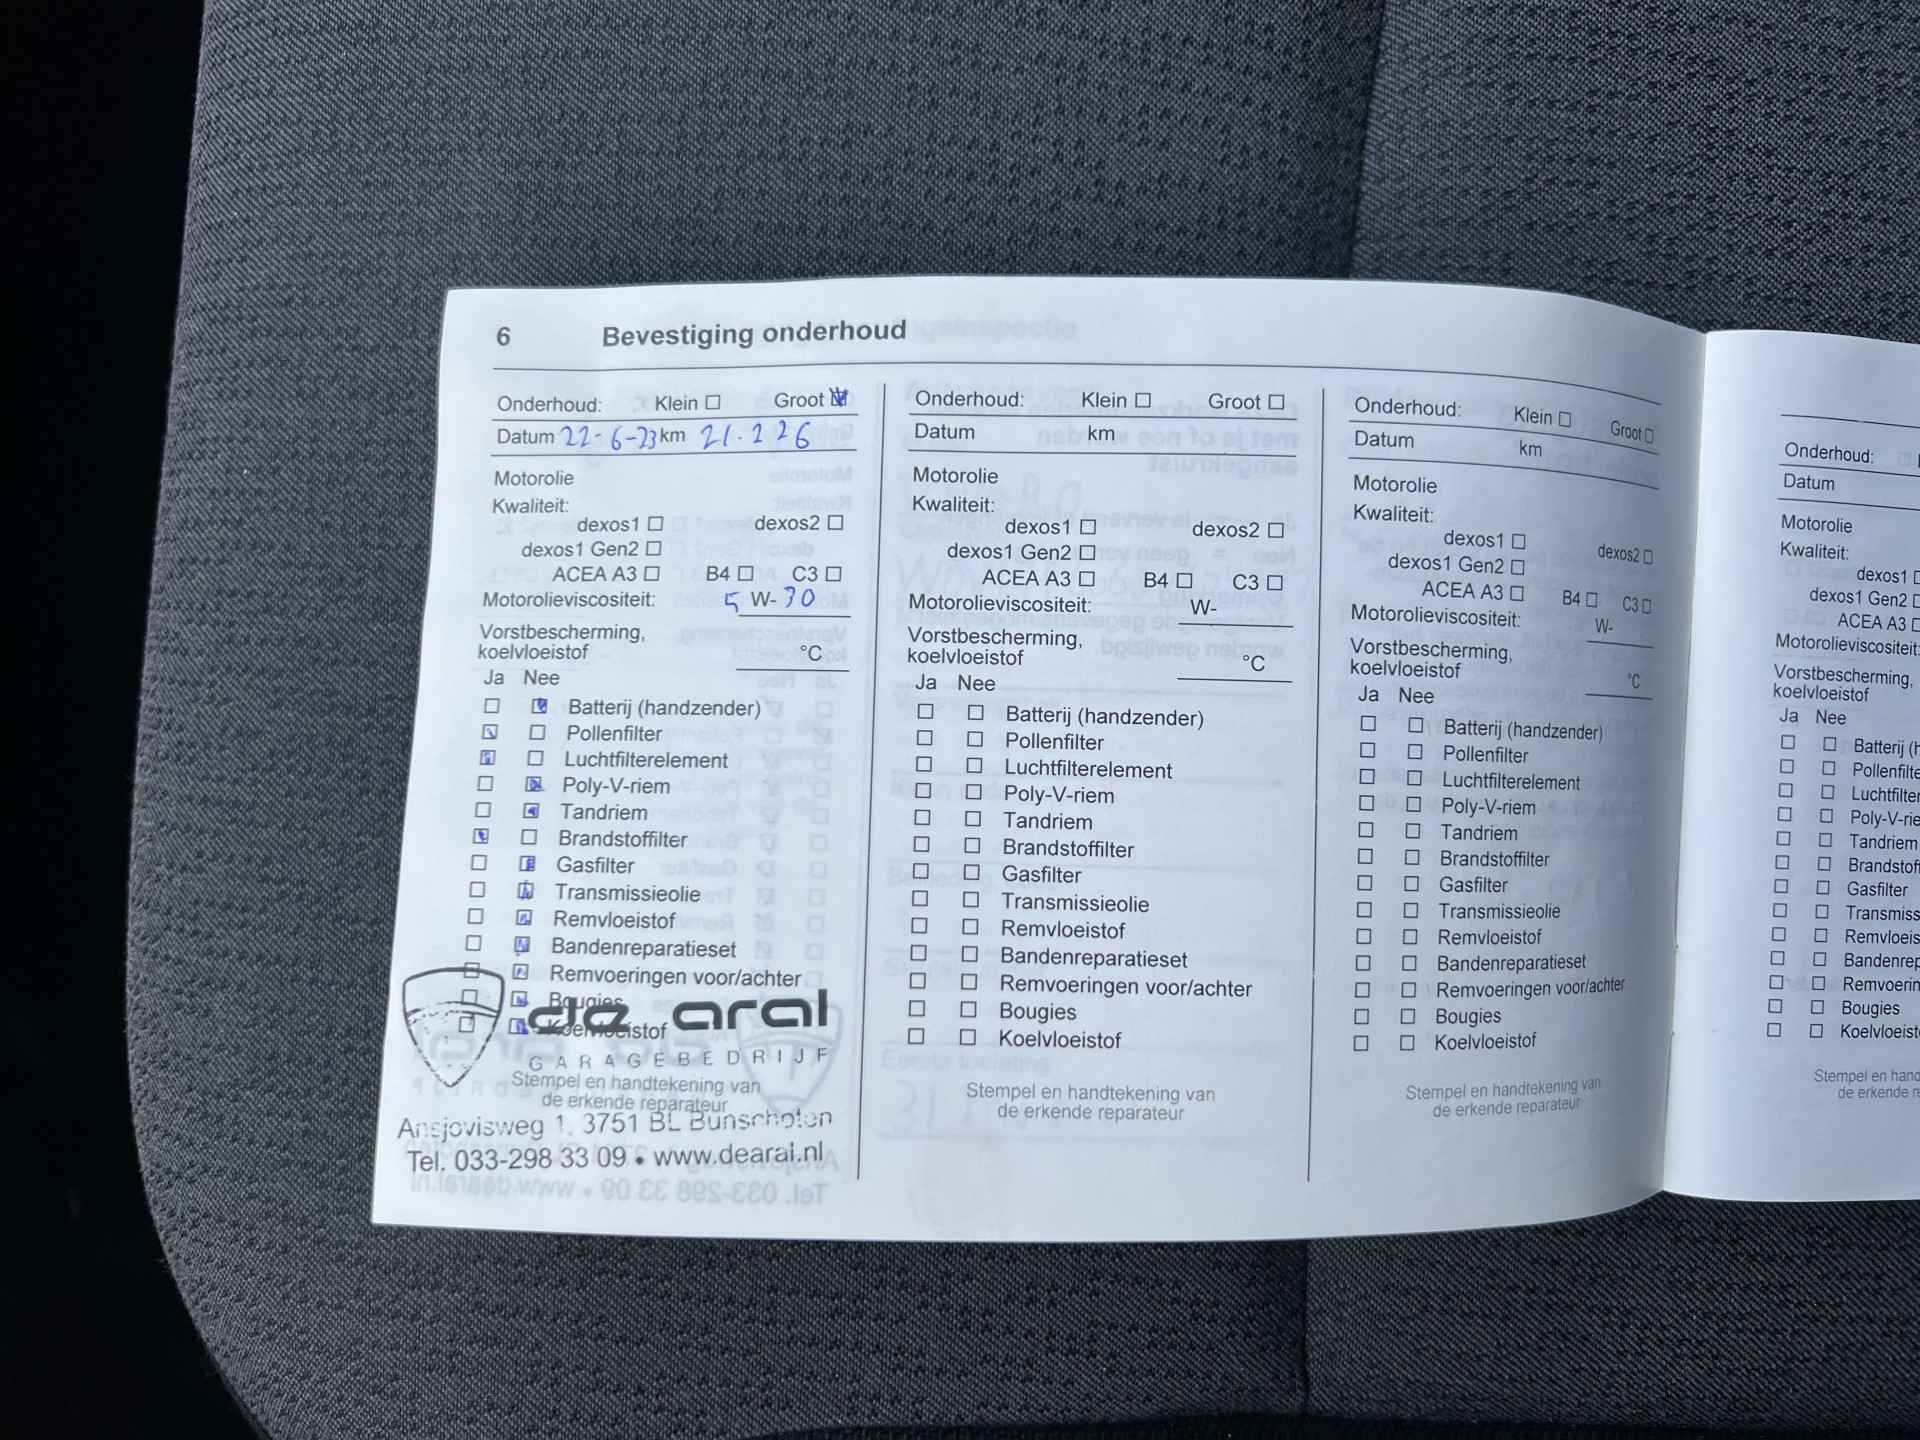 6 Bevestiging onderhoud
Onderhoud: Klein Groot
Datum 22-6-23 km 21.226
Motorolie
Kwaliteit:
dexos1 dexos2
dexos1 Gen2
ACEA A3 B4 C3
Motorolieviscositeit: 5 W-30
Vorstbescherming,
koelvloeistof °C
Ja Nee
Batterij (handzender)
Pollenfilter
Luchtfilterelement
Poly-V-riem
Tandriem
Brandstoffilter
Gasfilter
Transmissieolie
Remvloeistof
Bandenreparatieset
Remvoeringen voor/achter
Bougies
Koelvloeistof
de aral
GARAGEBEDRIJF
Stempel en handtekening van
de erkende reparateur
Ansjovisweg 1, 3751 BL Bunschoten
Tel. 033-298 33 09 • www.dearal.nl
Onderhoud: Klein Groot
Datum km
Motorolie
Kwaliteit:
dexos1 dexos2
dexos1 Gen2
ACEA A3 B4 C3
Motorolieviscositeit: W-
Vorstbescherming,
koelvloeistof °C
Ja Nee
Batterij (handzender)
Pollenfilter
Luchtfilterelement
Poly-V-riem
Tandriem
Brandstoffilter
Gasfilter
Transmissieolie
Remvloeistof
Bandenreparatieset
Remvoeringen voor/achter
Bougies
Koelvloeistof
Stempel en handtekening van
de erkende reparateur
Onderhoud: Klein Groot
Datum km
Motorolie
Kwaliteit:
dexos1 dexos2
dexos1 Gen2
ACEA A3 B4 C3
Motorolieviscositeit: W-
Vorstbescherming,
koelvloeistof °C
Ja Nee
Batterij (handzender)
Pollenfilter
Luchtfilterelement
Poly-V-riem
Tandriem
Brandstoffilter
Gasfilter
Transmissieolie
Remvloeistof
Bandenreparatieset
Remvoeringen voor/achter
Bougies
Koelvloeistof
Stempel en handtekening van
de erkende reparateur
Onderhoud:
Datum
Motorolie
Kwaliteit:
dexos1
dexos1 Gen2
ACEA A3
Motorolieviscositeit:
Vorstbescherming,
koelvloeistof
Ja Nee
Batterij (h
Pollenfilte
Luchtfilter
Poly-V-rie
Tandriem
Brandstof
Gasfilter
Transmiss
Remvloeis
Bandenrep
Remvoerin
Bougies
Koelvloeist
Stempel en hand
de erkende re